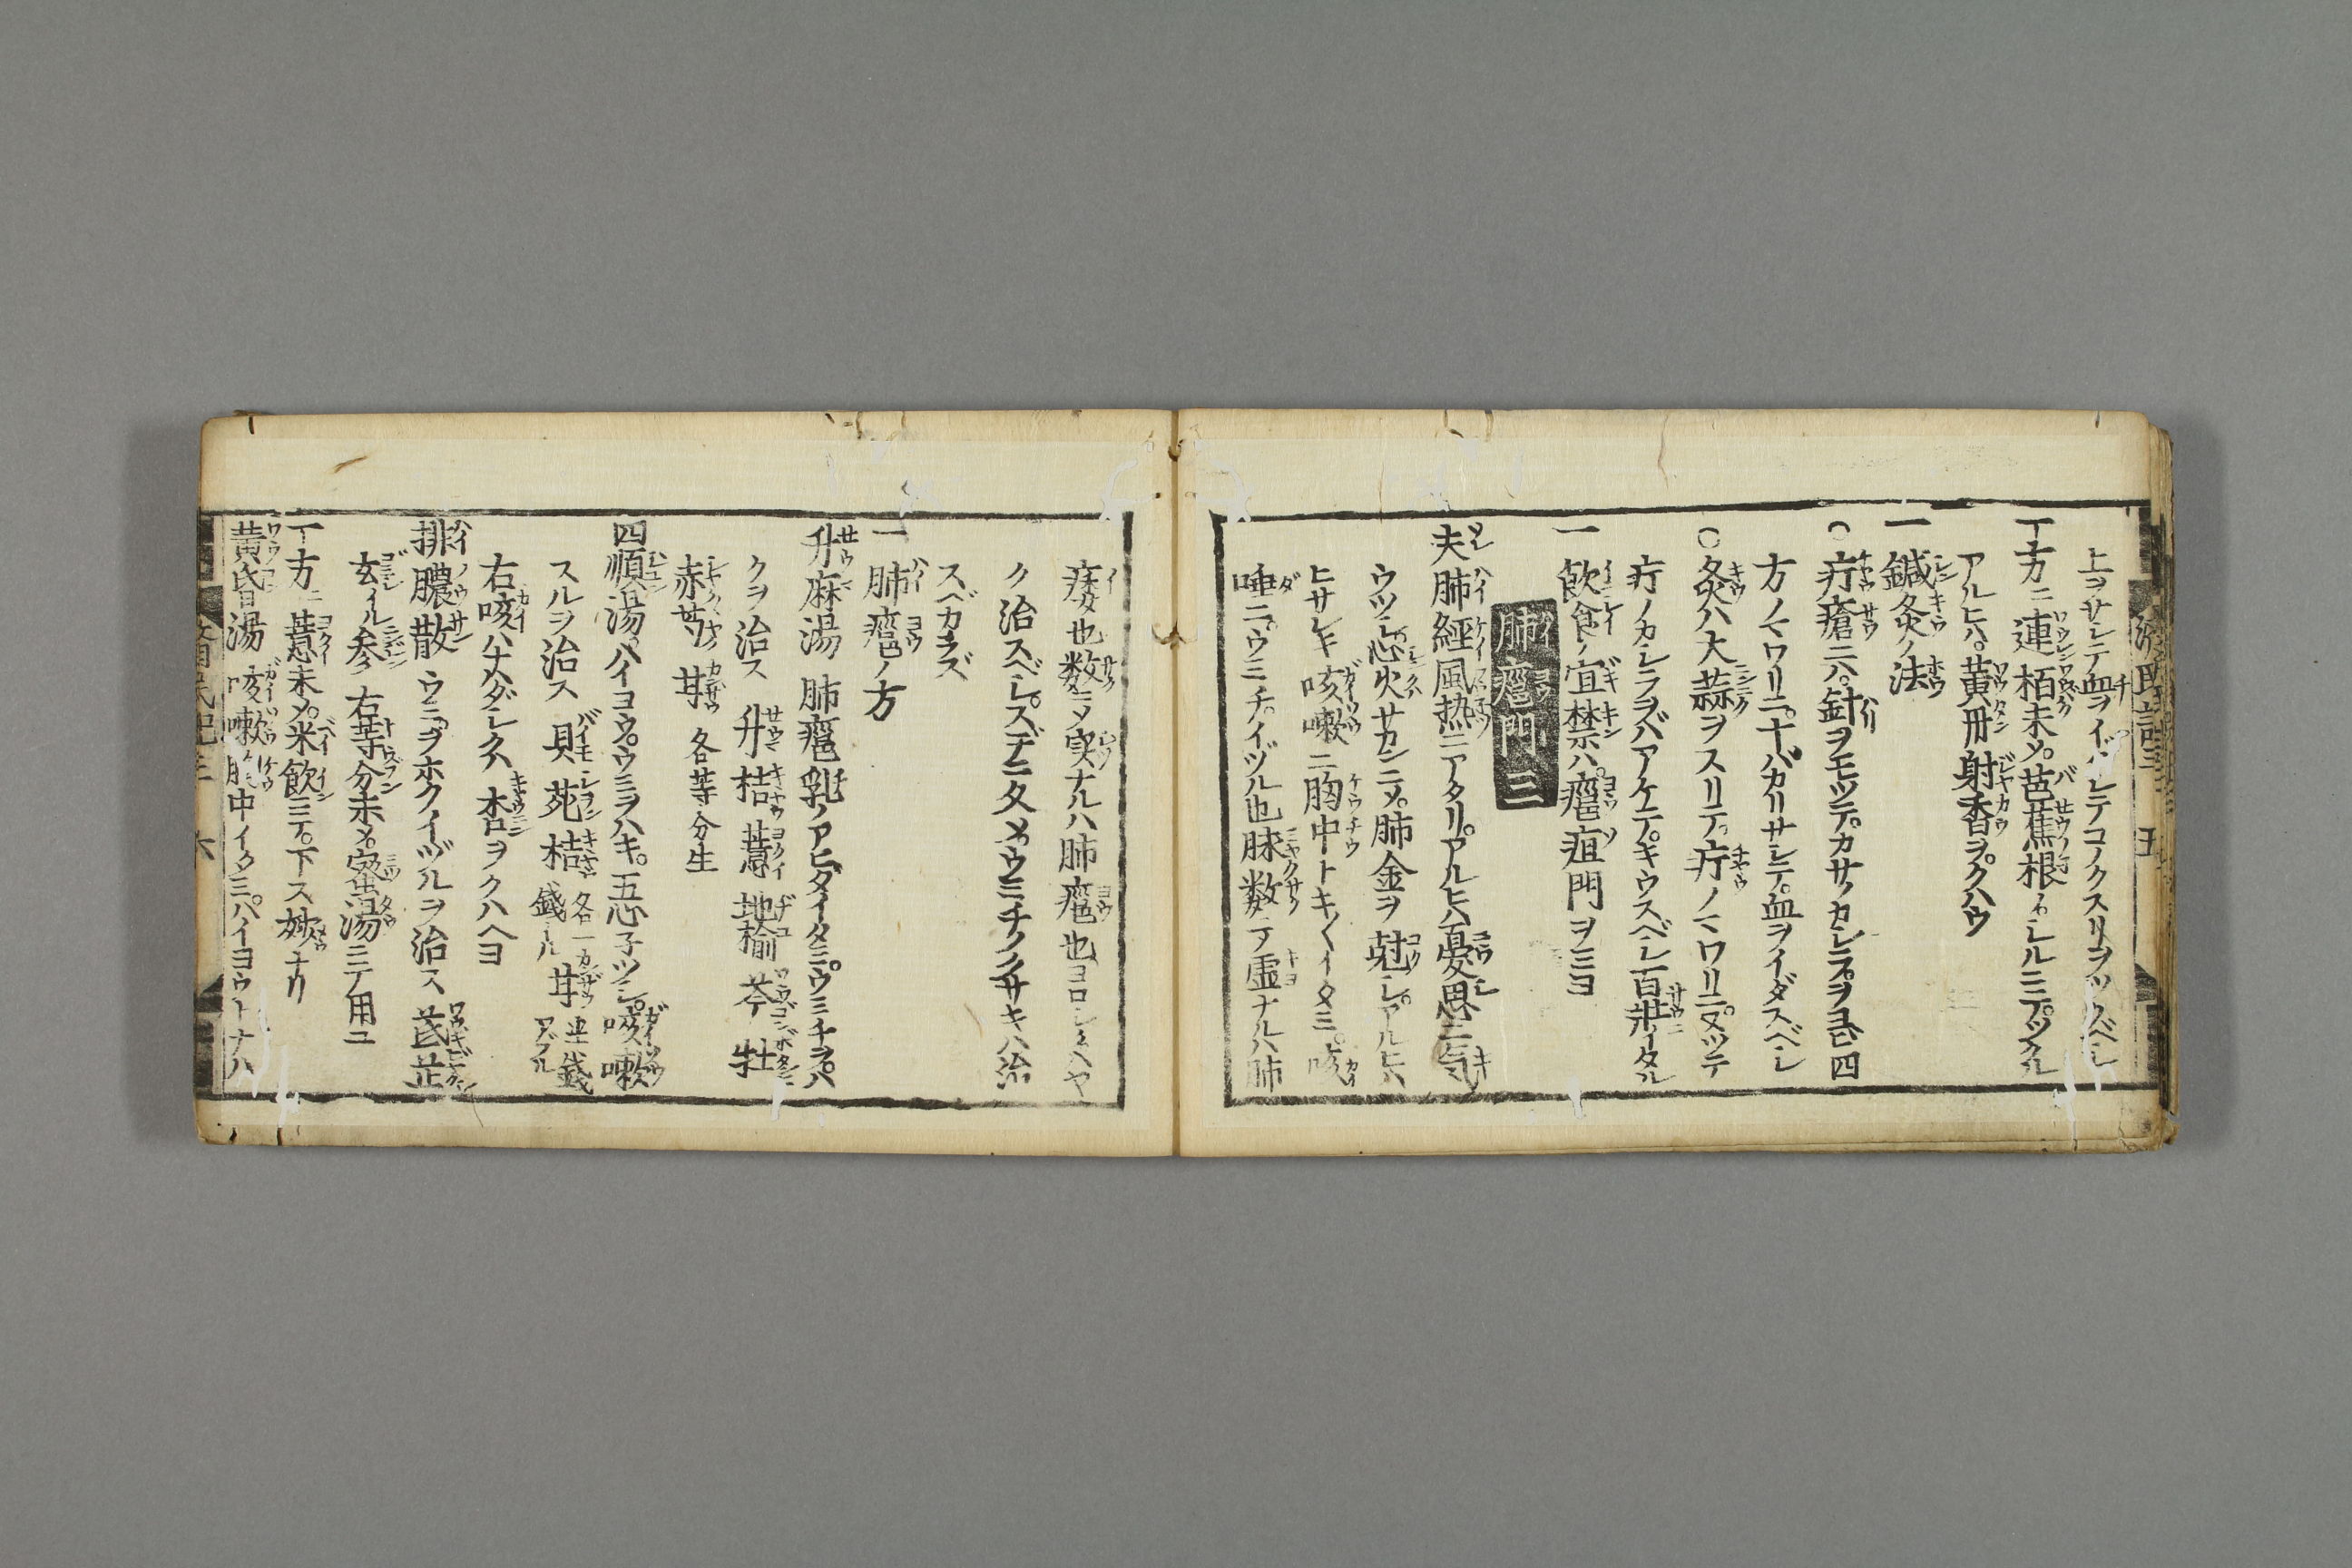 上ヲサシテ血ヲイダシテコノクスリヲツクベシ
一方ニ連栢末メ芭蕉根ノシルニテツクル
アルヒハ黄丹射香ヲクハウ
一鍼灸ノ法
○疔瘡ニハ針ヲモツテカサノカシラヲヨビ四
方ノマワリニ十バカリサシテ血ヲイダスベシ
○灸ハ大蒜ヲスリテ疔ノマワリニヌツテ
疔ノカシラヲバアケテキウスベシ百壯イタル
一飲食ノ宜禁ハ癰疽門ヲミヨ
肺癰門三
夫肺經風热ニアタリアルヒハ憂思ニ气
ウツシ心火サカンニメ肺金ヲ尅シアルヒハ
ヒサシキ咳嗽ニ胸中トキ〱イタミ咳
唾ニウミチイヅル也脉数ニ〆虚ナルハ肺
痿也数ニメ実ナルハ肺癰也ヨロシクハヤ
ク治スベシスデニタメウミチノクサキハ治
スベカラズ
一肺癰ノ方
升麻湯 肺癰乳ノアヒダイタミウミチヲハ
クヲ治ス 升 桔 薏 地楡 芩 牡
赤芍 甘 各等分生
四順湯 ハイヨウウミヲハキ五心子ツシ咳嗽
スルヲ治ス 貝 苑 桔 各一錢 甘 七錢
右咳ハナハダシクハ杏ヲクハヘヨ
排膿散 ウミヲホクイヅルヲ治ス 芪 芷
玄 参 右等分末メ蜜湯ニテ用ユ
一方ニ薏末メ米飲ニテ下ス妙ナリ
黄昏湯 咳嗽胸中イタミハイヨウトナハ